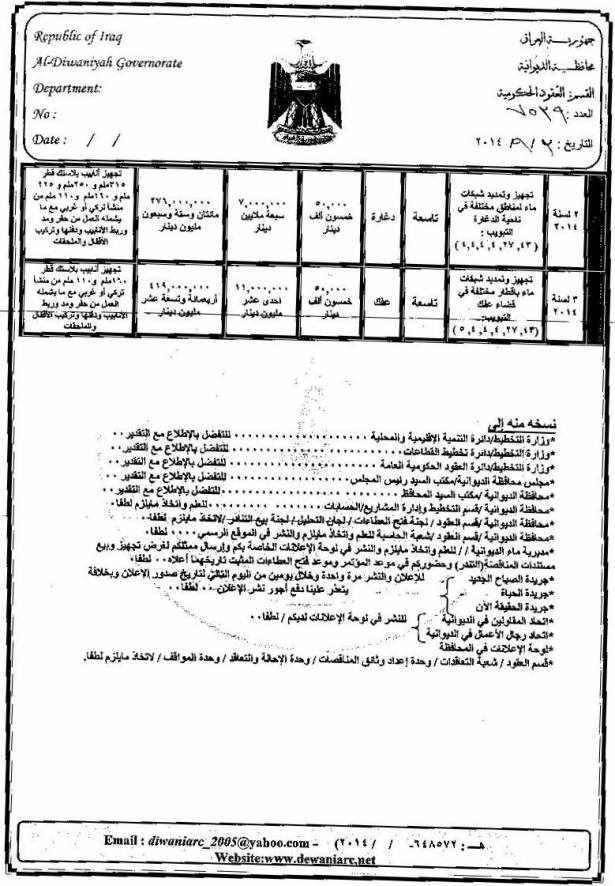 Republic of Iraq
Al-Diwaniyah Governorate
Department:
No :
Date : / /
جمهورية العراق
محافظة الديوانية
القسم: العقود الحكومية
العدد: ٧٥٣٩
التاريخ: ٩/٣ / ٢٠١٤
٢ لسنة ٢٠١٤
تجهيز وتمديد شبكات
ماء لمناطق مختلفة في
ناحية الدغارة
التبويب:
(٤,٤,٤,٢٧,٤٣)
تاسعة
دغارة
٥٠,٠٠٠
خمسون ألف
دينار
٧,٠٠٠,٠٠٠
سبعة ملايين
دينار
٢٧٦,٠٠٠,٠٠٠
مائتان وستة وسبعون
مليون دينار
تجهيز أنابيب بلاستك قطر
٣١٥ملم و ٢٥٠ملم و ٢٢٥
ملم و ١٦٠ملم و ١١٠ ملم من
منشأ تركي أو غربي مع ما
يشمله العمل من حفر ومد
وربط الأنابيب ودفنها وتركيب
الأقفال والملحقات
٣ لسنة
٢٠١٤
تجهيز وتمديد شبكات
ماء باقطار مختلفة في
قضاء عفك
التبويب:
(٥,٤,٤,٢٧,٤٣)
تاسعة
عفك
٥٠,٠٠٠
خمسون ألف
دينار
١١,٠٠٠,٠٠٠
احدى عشر
مليون دينار
٤١٩,٠٠٠,٠٠٠
أربعمائة وتسعة عشر
مليون دينار
تجهيز أنابيب بلاستك قطر
١٦٠ملم و ١١٠ ملم من منشأ
تركي أو غربي مع ما يشمله
العمل من حفر ومد وربط
الأنابيب ودفنها وتركيب الأقفال
والملحقات
نسخه منه إلى
*وزارة التخطيط/دائرة التنمية الإقليمية والمحلية .................. للتفضل بالإطلاع مع التقدير..
*وزارة التخطيط/دائرة تخطيط القطاعات.................. للتفضل بالإطلاع مع التقدير..
*وزارة التخطيط/دائرة العقود الحكومية العامة .................. للتفضل بالإطلاع مع التقدير..
*مجلس محافظة الديوانية/مكتب السيد رئيس المجلس.................. للتفضل بالإطلاع مع التقدير..
*محافظة الديوانية /مكتب السيد المحافظ.................. للتفضل بالإطلاع مع التقدير..
*محافظة الديوانية /قسم التخطيط وإدارة المشاريع/الحسابات.................. للعلم واتخاذ مايلزم لطفا.
*محافظة الديوانية /قسم العقود / لجنة فتح العطاءات / لجان التحليل / لجنة بيع التنادر /لاتخاذ مايلزم لطفا..
*محافظة الديوانية /قسم العقود /شعبة الحاسبة للعلم واتخاذ مايلزم والنشر في الموقع الرسمي......لطفا..
*مديرية ماء الديوانية / / للعلم واتخاذ مايلزم والنشر في لوحة الإعلانات الخاصة بكم وإرسال ممثلكم لغرض تجهيز وبيع
مستندات المناقصة(التندر) وحضوركم في موعد المؤتمر وموعد فتح العطاءات المثبت تاريخهما أعلاه.. لطفا.
*جريدة الصباح الجديد
*جريدة الحياة
*جريدة الحقيقة الآن
للإعلان والنشر مرة واحدة وخلال يومين من اليوم التالي لتاريخ صدور الإعلان وبخلافة
يتعذر علينا دفع أجور نشر الإعلان... لطفا..
*اتحاد المقاولين في الديوانية
*اتحاد رجال الأعمال في الديوانية
للنشر في لوحة الإعلانات لديكم / لطفا..
*لوحة الإعلانات في المحافظة
*قسم العقود / شعبة التعاقدات / وحدة إعداد وثائق المناقصات / وحدة الإحالة والتعاقد / وحدة المواقف / لاتخاذ مايلزم لطفا.
هـ: ٦٤٨٥٧٢- / / ٢٠١٤) – Email : diwaniarc_2005@yahoo.com
Website:www.dewaniarc.net